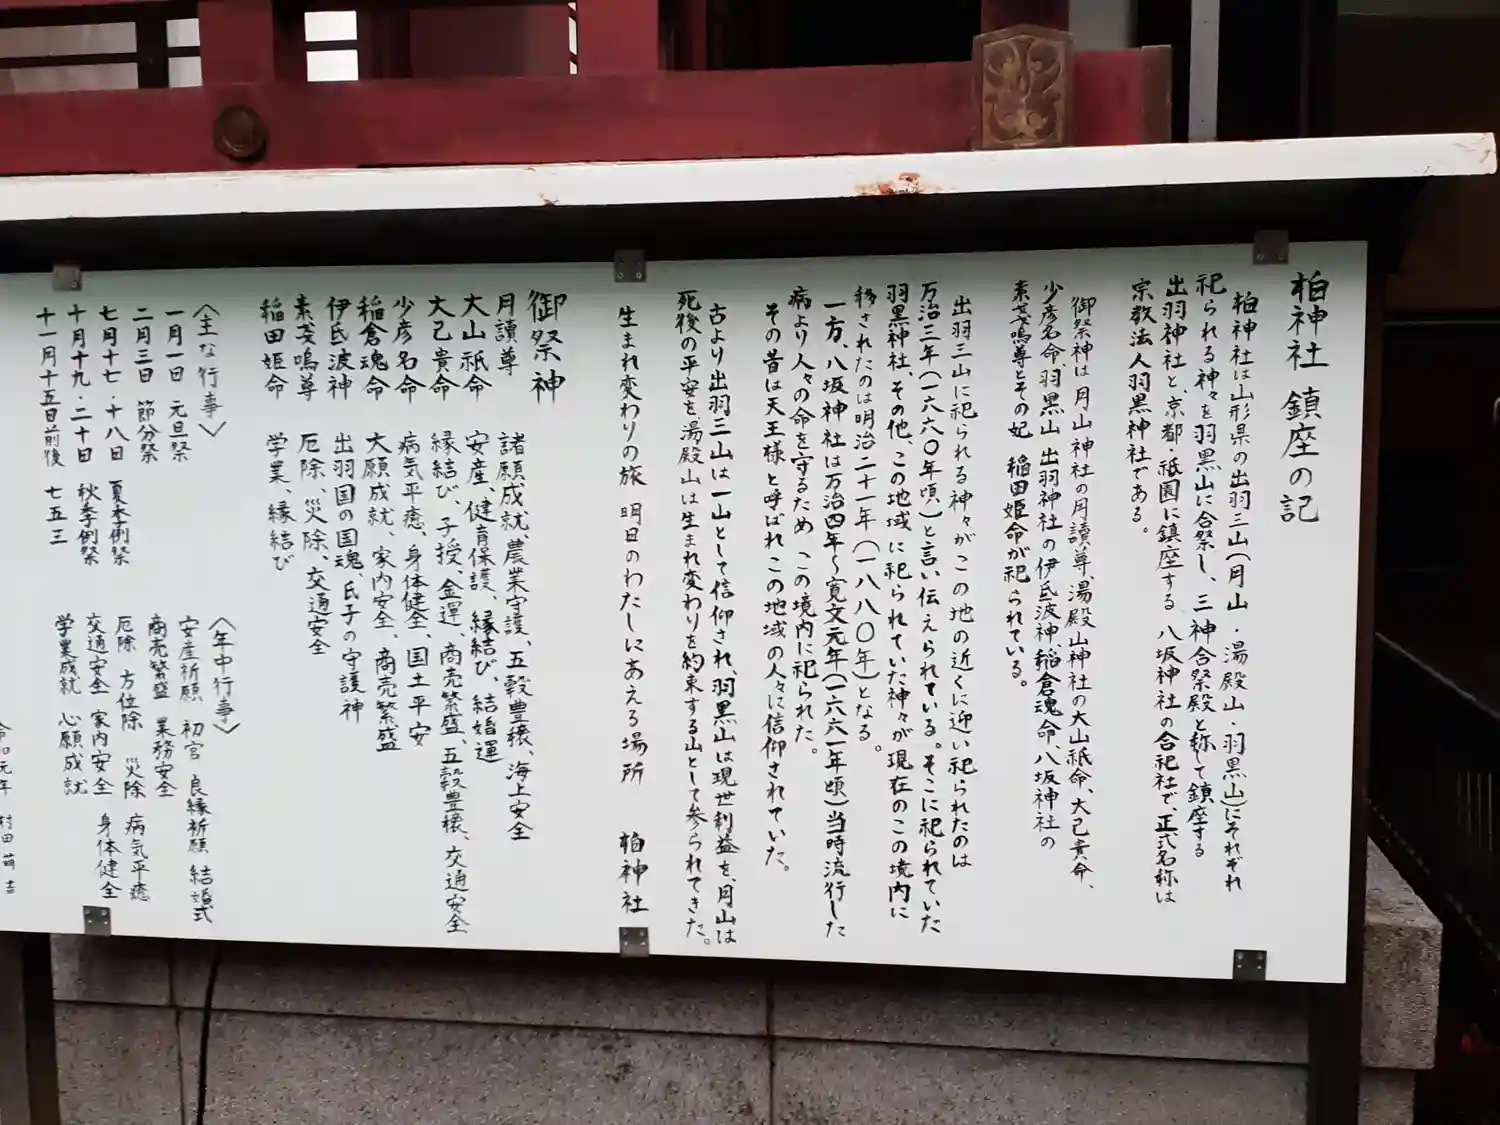 柏神社 鎮座の記
柏神社は山形県の出羽三山(月山・湯殿山・羽黒山)にそれぞれ
祀られる神々を羽黒山に合祭し、三神合祭殿と称して鎮座する
出羽神社と、京都・祇園に鎮座する 八坂神社の合祀社で、正式名称は
宗教法人羽黒神社である。
御祭神は月山神社の月讀尊、湯殿山神社の大山祇命、大己貴命、
少彦名命、羽黒山 出羽神社の伊氐波神、稲倉魂命、八坂神社の
素戔嗚尊とその妃 稲田姫命が祀られている。
出羽三山に祀られる神々がこの地の近くに迎い祀られたのは
万治三年(一六六〇年頃)と言い伝えられている。そこに祀られていた
羽黒神社、その他、この地域に祀られていた神々が現在のこの境内に
移されたのは明治二十一年(一八八〇年)となる。
一方、八坂神社は万治四年〜寛文元年(一六六一年頃)当時流行した
病より人々の命を守るため この境内に祀られた。
その昔は天王様と呼ばれこの地域の人々に信仰されていた。
古より出羽三山は一山として信仰され、羽黒山は現世利益を、月山は
死後の平安を、湯殿山は生まれ変わりを約束する山として参られてきた。
生まれ変わりの旅 明日のわたしにあえる場所 柏神社
御祭神
月讀尊 諸願成就、農業守護、五穀豊穣、海上安全
大山祇命 安産、健育保護、縁結び、結婚運
大己貴命 縁結び、子授、金運、商売繁盛、五穀豊穣、交通安全
少彦名命 病気平癒、身体健全、国土平安
稲倉魂命 大願成就、家内安全、商売繁盛
伊氐波神 出羽国の国魂、氏子の守護神
素戔嗚尊 厄除、災除、交通安全
稲田姫命 学業、縁結び
〈主な行事〉
一月一日 元旦祭
二月三日 節分祭
七月十七・十八日 夏季例祭
十月十九・二十日 秋季例祭
十一月十五日前後 七五三
〈年中行事〉
安産祈願 初宮 良縁祈願 結婚式
商売繁盛 業務安全
厄除 方位除 災除 病気平癒
交通安全 家内安全 身体健全
学業成就 心願成就
令和元年 村田 萌吉